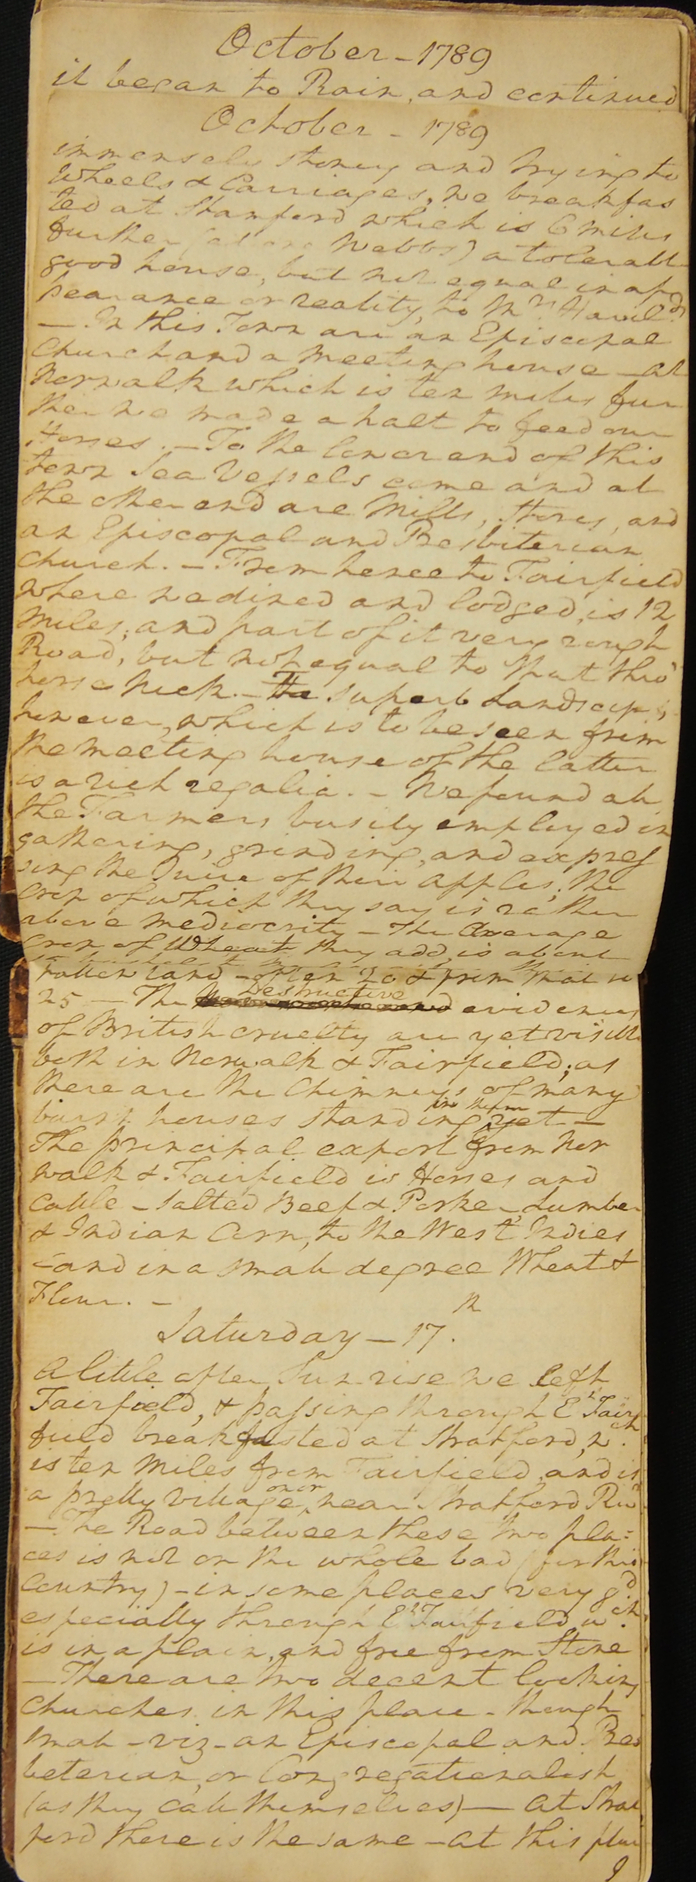 October - 1789
it began to Rain, and continued
October - 1789
immensely stoney and trying to
Wheels & Carriages, we breakfas
ted at Stamford which is 6 miles
further (at one Webbs) a tolerable
good house, but not equal in ap
pearance or reality, to Mrs. Havild's
— In this Town are an Episcopal
Church and a Meeting house — at
Norwalk which is ten miles fur
ther we made a halt to feed our
Horses. — To the lower end of this
town Sea Vessels come and at
the other end are Mills, Stores, and
an Episcopal and Presbiterian
Church. — From hence to Fairfield
where we dined and lodged, is 12
Miles; and part of it very rough
Road, but not equal to that thro'
horse Neck. — The superb Landscape,
however, which is to be seen from
the Meeting house of the latter
is a rich regalia. — We found all
the Farmers busily employed in
gathering, grinding, and expres
sing the Juice of their Apples; the
Crop of which they say is rather
above mediocrity — The Average
Crop of Wheat they add, is about
25 — The Destructive evidences
of British cruelty are yet visible
both in Norwalk & Fairfield; as
there are the Chimneys of many
burnt houses standing in them yet —
The principal export from Nor
walk & Fairfield is Horses and
Cattle — salted Beef & Porke, Lumber
& Indian Corn, to the West Indies
— and in a small degree Wheat &
Flour. —
Saturday — 17th.
A little after Sun rise we left
Fairfield, & passing through Et. Fair
field breakfasted at Stratford, wch.
is ten Miles from Fairfield, and is
a pretty village on or near Stratford Rivr
— The Road between these two pla=
ces is not on the whole bad (for this
Country) — in some places very gd.
especially through Et. Fairfield wch.
is in a plain, and free from Stone
— There are two decent looking
Churches in this place — though
small — viz — an Episcopal and Pres
beterian, or Congregationalist
(as they call themselves) — At Strat
ford there is the same — At this place